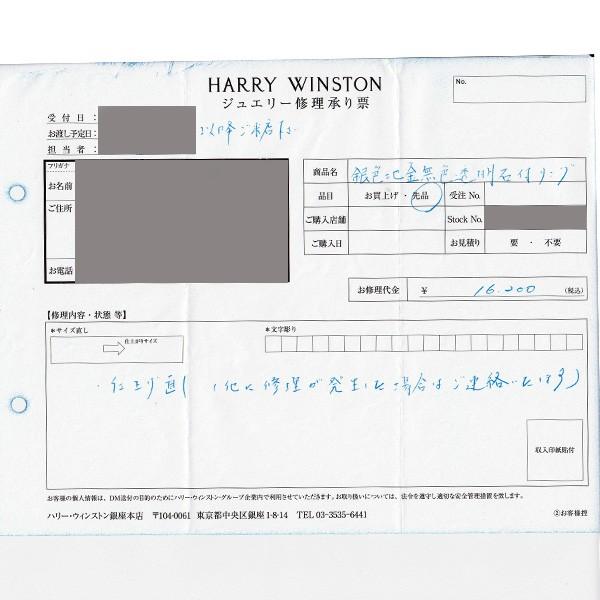 HARRY WINSTON
ジュエリー修理承り票
No.
受付日：
お渡し予定日：
以降ご来店
担当者：
フリガナ
お名前
ご住所
お電話
商品名 銀色地金無色透明石付リング
品目 お買上げ・先品 受注 No.
ご購入店舗 Stock No.
ご購入日 お見積り 要・不要
お修理代金 ¥ 16.200 (税込)
【修理内容・状態 等】
*サイズ直し
仕上がりサイズ
*文字彫り
・仕上げ直し (他に修理が発生した場合はご連絡いたします)
収入印紙貼付
お客様の個人情報は、DM送付の目的のためにハリー・ウィンストン・グループ企業内で利用させていただきます。お取り扱いについては、法令を遵守し適切な安全管理措置を致します。
ハリー・ウィンストン銀座本店 〒104-0061 東京都中央区銀座 1-8-14 TEL 03-3535-6441
②お客様控